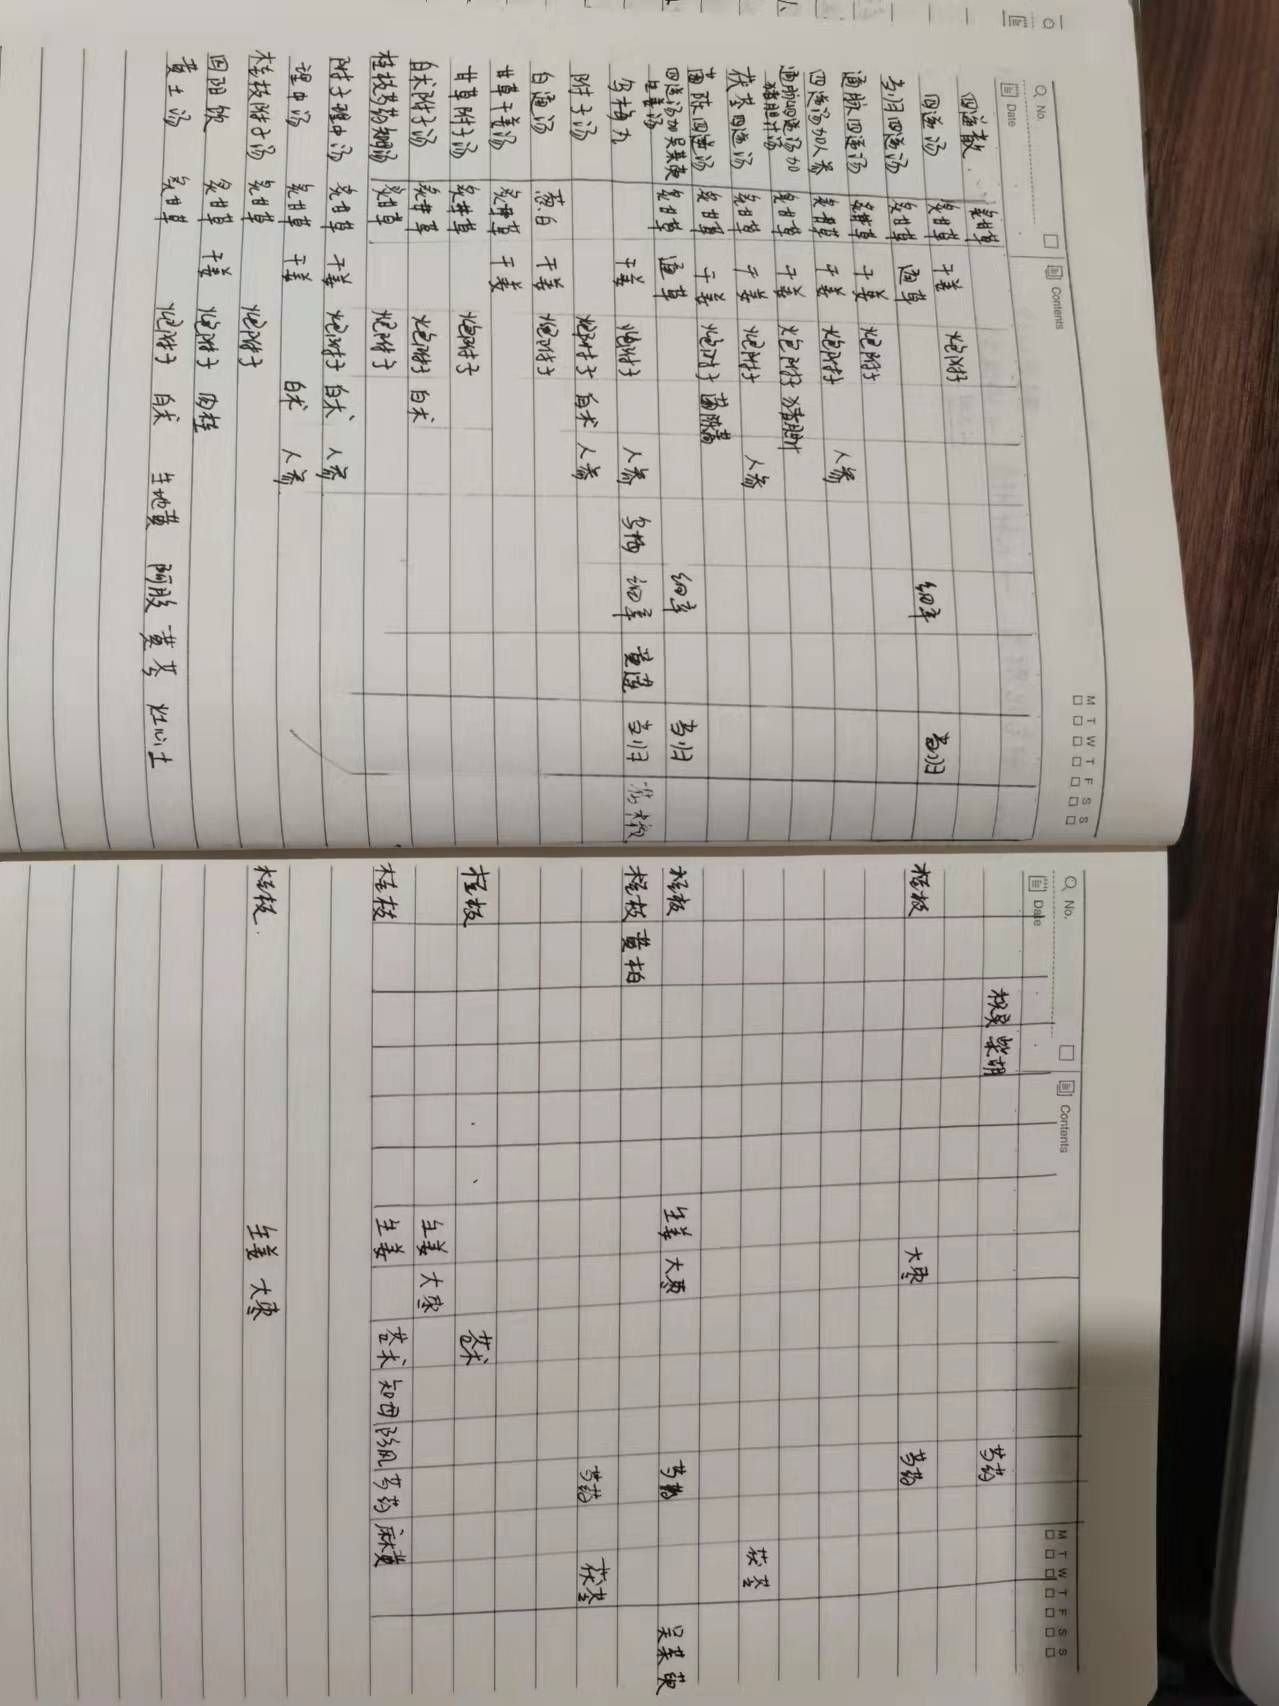 No.
Date
Contents
M T W T F S S
四逆散 炙甘草 枳实 柴胡 芍药
四逆汤 炙甘草 干姜 炮附子
当归四逆汤 炙甘草 通草 细辛 当归 桂枝 大枣 芍药
通脉四逆汤 炙甘草 干姜 炮附子
四逆汤加人参 炙甘草 干姜 炮附子 人参
通脉四逆汤加猪胆汁汤 炙甘草 干姜 炮附子 猪胆汁
茯苓四逆汤 炙甘草 干姜 炮附子 人参 茯苓
茵陈四逆汤 炙甘草 干姜 炮附子 茵陈蒿
四逆汤加吴茱萸生姜汤 炙甘草 通草 细辛 当归 桂枝 生姜 大枣 芍药 吴茱萸
乌梅丸 干姜 炮附子 人参 乌梅 细辛 黄连 当归 蜀椒 桂枝 黄柏
附子汤 炮附子 白术 人参 芍药 茯苓
白通汤 葱白 干姜 炮附子
甘草干姜汤 炙甘草 干姜
甘草附子汤 炙甘草 炮附子 桂枝 苍术
白术附子汤 炙甘草 炮附子 白术 生姜 大枣
桂枝芍药知母汤 炙甘草 炮附子 桂枝 生姜 苍术 知母 防风 芍药 麻黄
附子理中汤 炙甘草 干姜 炮附子 白术 人参
理中汤 炙甘草 干姜 白术 人参
桂枝附子汤 炙甘草 炮附子 桂枝 生姜 大枣
回阳饮 炙甘草 干姜 炮附子 肉桂
黄土汤 炙甘草 炮附子 白术 生地黄 阿胶 黄芩 灶心土
No.
Date
Contents
M T W T F S S